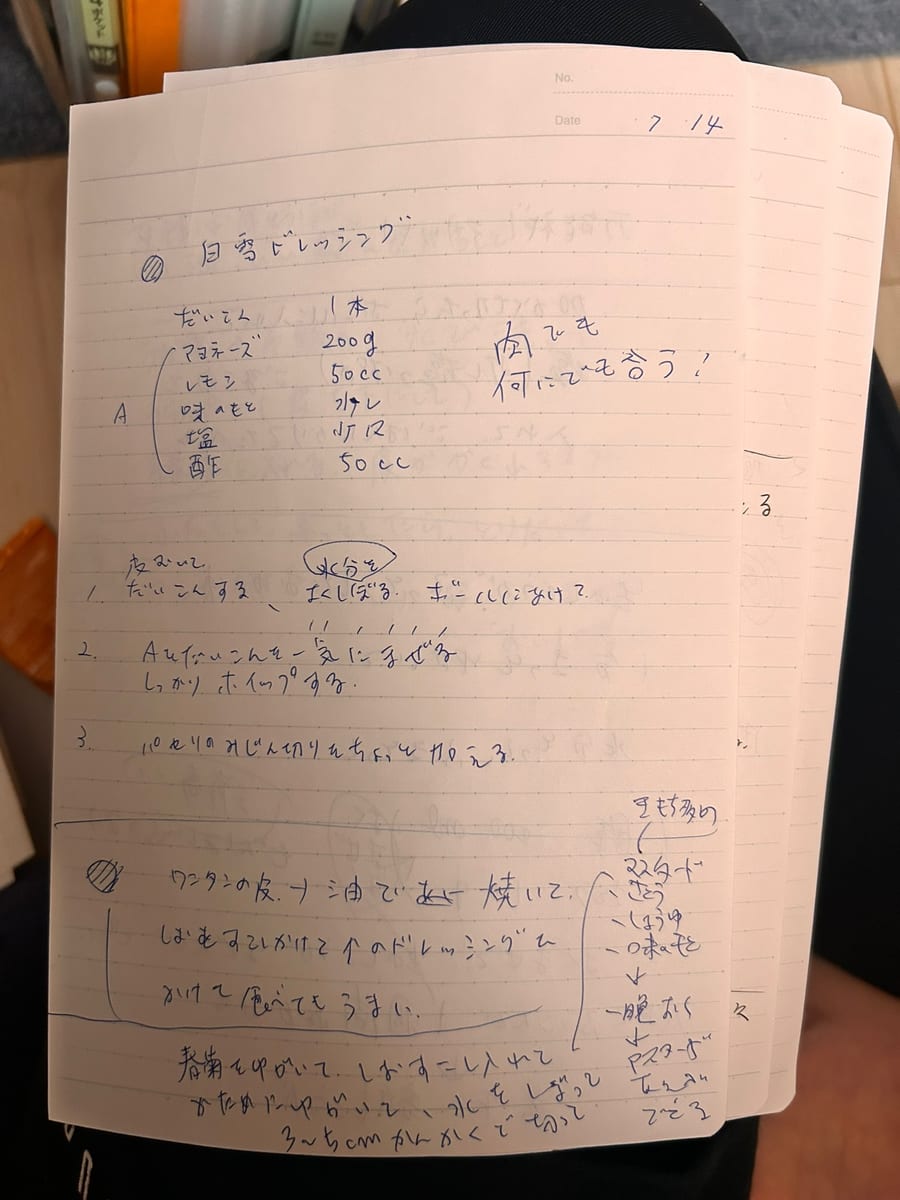 No.
Date 7 14
白雪ドレッシング
だいこん 1本
マヨネーズ 200g
レモン 50cc
味のもと 少し
塩 少々
酢 50cc
A
肉でも
何にでも合う!
皮むいて
水分を
1. だいこんする、よくしぼる. ボールにあけて
2. Aとだいこんを一気にまぜる
しっかりホイップする.
3. パセリのみじん切りをちょっと加える.
ワンタンの皮→油で 焼いて.
しおをすこしかけて个のドレッシングを
かけて食べてもうまい.
春菊をゆがいて. しおすこし入れて
かためにゆがいて、水をしぼって
3~5cmかんかくで切って
多め
マスタード
さとう
しょうゆ
味のもと
↓
一晩おく
↓
マスタード
できる
る